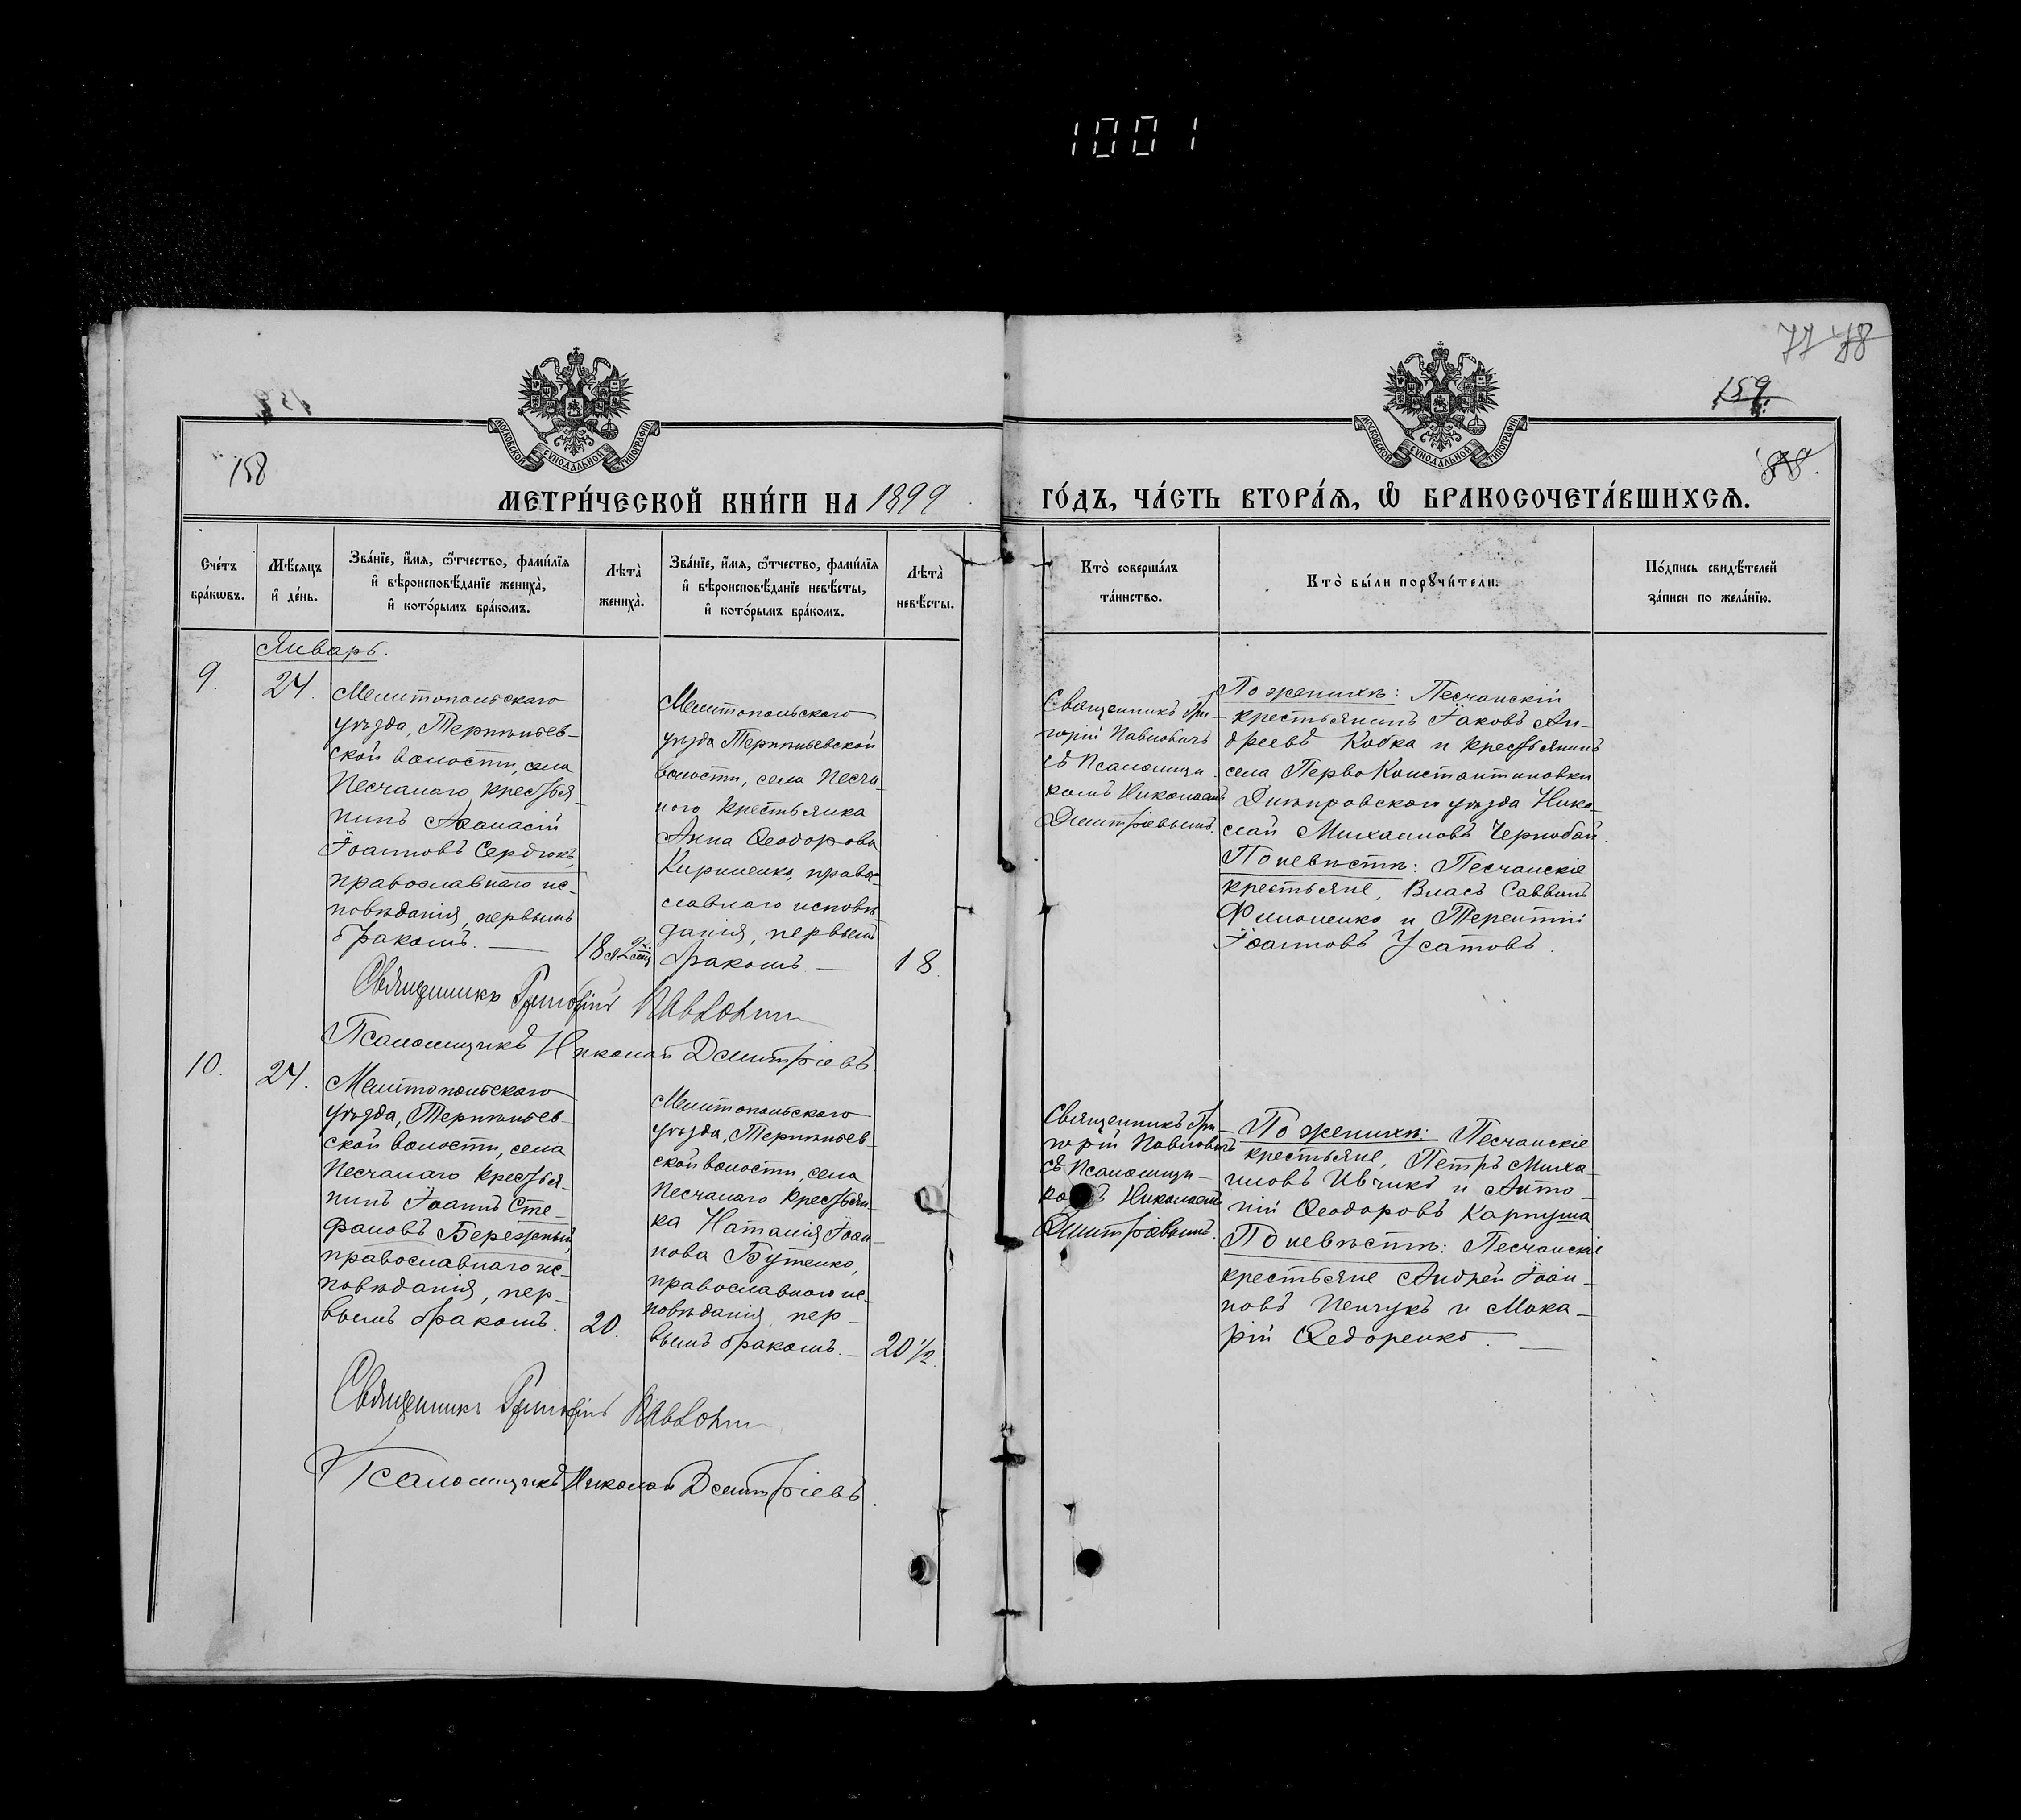 1001
77 78
159
158
МОСКОВСКОЙ СУНОДАЛЬНОЙ ТИПОГРАФІИ
МОСКОВСКОЙ СУНОДАЛЬНОЙ ТИПОГРАФІИ
МЕТРИ́ЧЕСКОЙ КНИ́ГИ НА 1899
ГО́ДЪ, ЧА́СТЬ ВТОРА́Я, Ѡ БРАКОСОЧЕТА́ВШИХСѦ.
Сче́тъ бра́кѡвъ.
Мѣ́сяцъ и҆ де́нь.
Зва́нїе, и҆́мя, ѻ҆́тчество, фами́лїя
и҆ вѣроисповѣ́данїе жениха̀,
и҆ кото́рымъ бра́комъ.
Лѣта̀ жениха̀.
Зва́нїе, и҆́мя, ѻ҆́тчество, фами́лїя
и҆ вѣроисповѣ́данїе невѣ́сты,
и҆ кото́рымъ бра́комъ.
Лѣта̀ невѣ́сты.
Кто̀ соверша́лъ
та́инство.
Кто̀ бы́ли порꙋчи́тели.
По́дпись свидѣ́телей
за́писи по жела́нїю.
Январь.
9.
24.
Мелитопольскаго
уѣзда, Терпѣньев-
ской волости, села
Песчанаго крестья-
нинъ Аѳанасій
Іоанновъ Сердюкъ,
православнаго ис-
повѣданія, первымъ
бракомъ.
18
Мелитопольскаго
уѣзда Терпѣньевской
волости, села Песча-
ного крестьянка
Анна Ѳеодорова
Кириленко, право-
славнаго исповѣ-
данія, первымъ
бракомъ.
18
Священникъ Гри-
горій Павловичъ
съ Псаломщи-
комъ Николаемъ
Дмитріевымъ.
По женихѣ: Песчанскій
крестьянинъ Іаковъ Ан-
дреевъ Кобка и крестьянинъ
села ПервоКонстантиновки
Днѣпровскаго уѣзда Нико-
лай Михаиловъ Чернобай.
По невѣстѣ: Песчанскіе
крестьяне, Власъ Саввинъ
Филоненко и Терентій
Іоанновъ Усатовъ.
Священникъ Григорій Павлович
Псаломщикъ Николай Дмитріевъ.
10.
24.
Мелитопольскаго
уѣзда, Терпѣньев-
ской волости, села
Песчанаго крестья-
нинъ Іоаннъ Сте-
фановъ Бережный,
православнаго ис-
повѣданія, пер-
вымъ бракомъ.
20.
Мелитопольскаго
уѣзда, Терпѣньев-
ской волости, села
Песчанаго крестьян-
ка Наталія Іоан-
нова Бутенко,
православнаго ис-
повѣданія, пер-
вымъ бракомъ.
20 1/2.
Священникъ Гри-
горій Павловичъ
съ Псаломщи-
комъ Николаемъ
Дмитріевымъ.
По женихѣ: Песчанскіе
крестьяне, Петръ Миха-
иловъ Ивчикъ и Анто-
ній Ѳеодоровъ Карпуша
По невѣстѣ: Песчанскіе
крестьяне Андрей Іоан-
новъ Пенчукъ и Мака-
рій Ѳедоренко.
Священникъ Григорій Павлович
Псаломщикъ Николай Дмитріевъ.